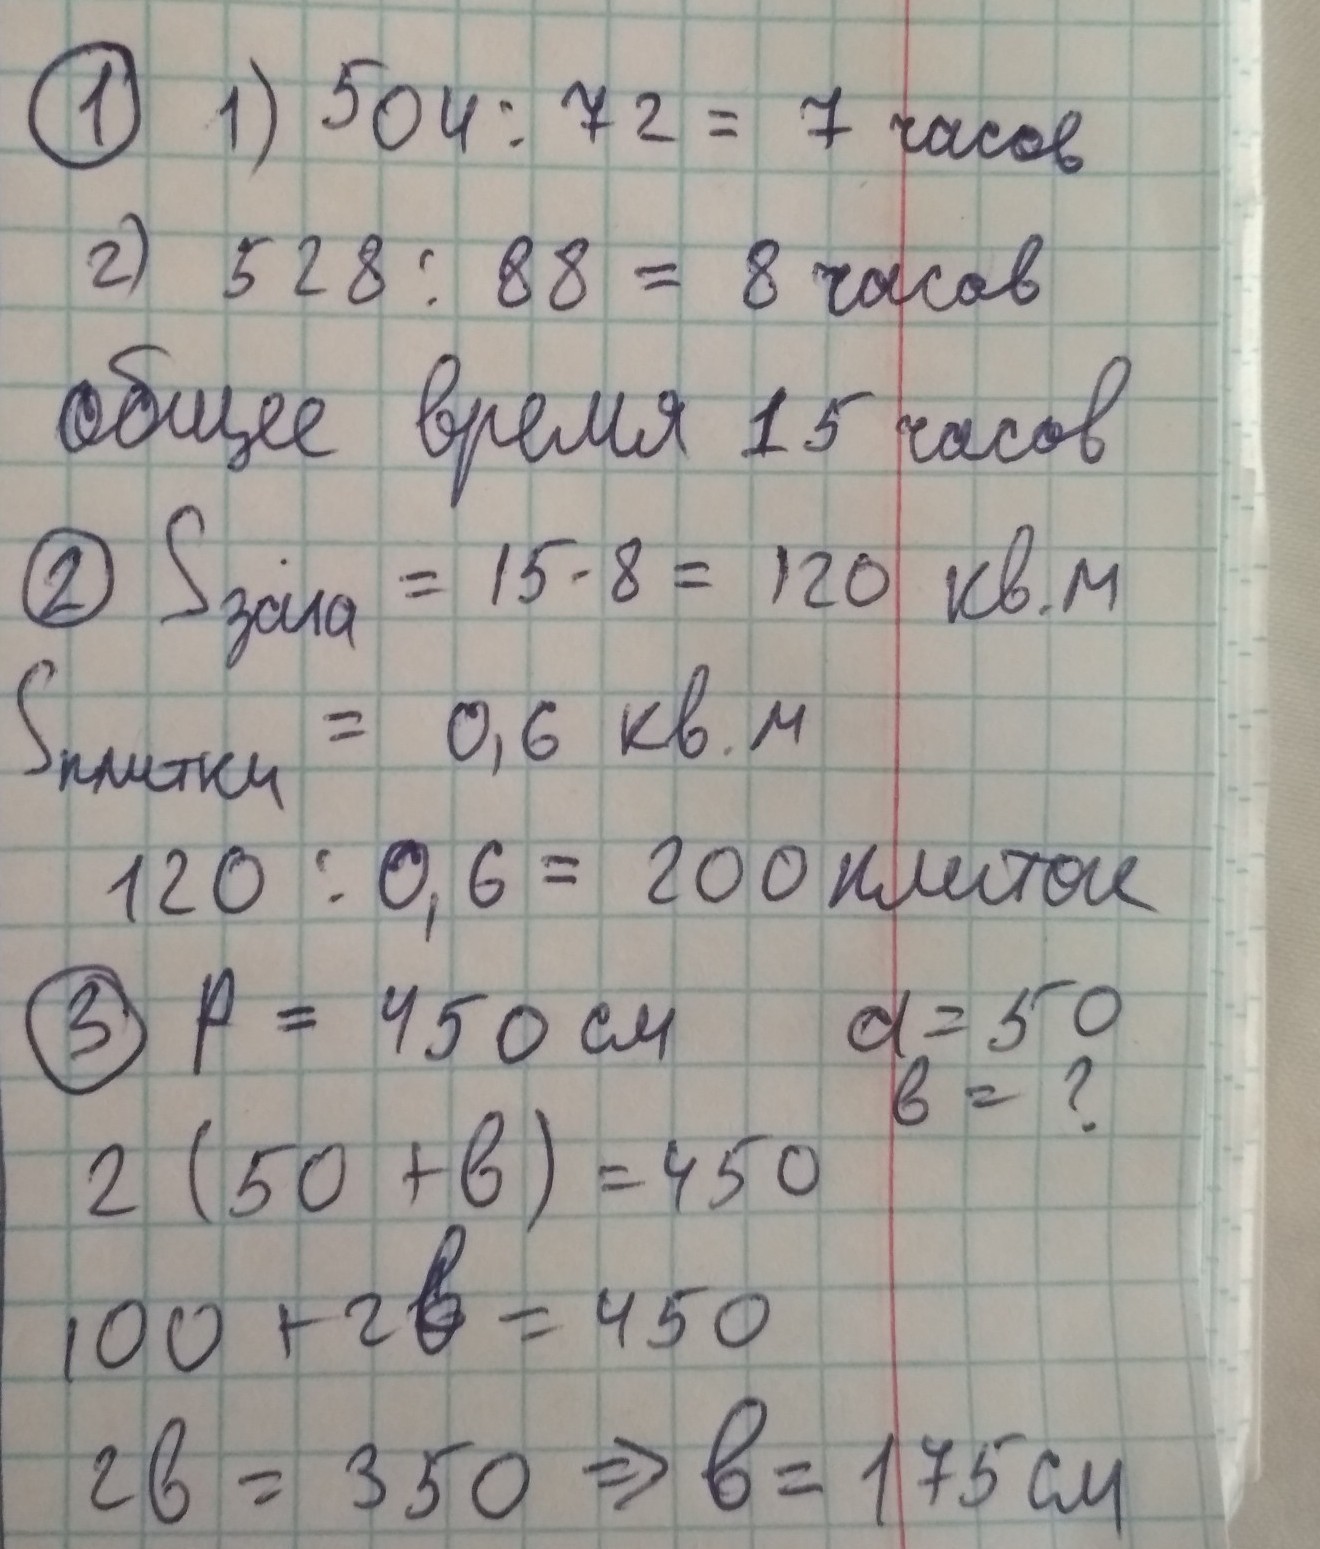 ① 1) 504 : 72 = 7 часов
2) 528 : 88 = 8 часов
общее время 15 часов
② Sзала = 15 · 8 = 120 кв. м
Sплитки = 0,6 кв. м
120 : 0,6 = 200 плиток
③ P = 450 см a = 50
в = ?
2 (50 + в) = 450
100 + 2в = 450
2в = 350 ⇒ в = 175 см